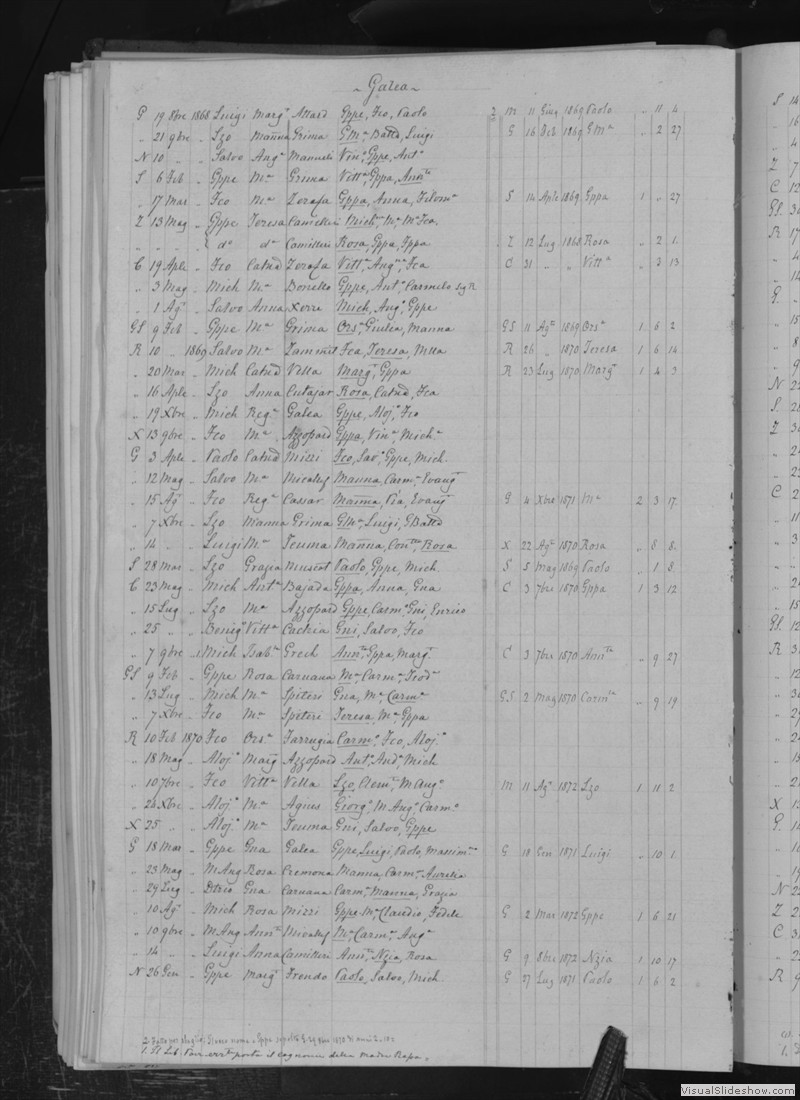 ~ Galea ~
G 19 8bre 1868 Luigi Marg.a Attard Gppe, Fco, Paolo 2 M 11 Giug 1869 Paolo " 11 4
" 21 9bre " Lzo Manna Grima G.Ma Battā, Luigi G 16 Feb 1869 GMa " 2 27
N 10 " " Salvo Ang.a Manueli Vin.o Gppe, Ant.o
S 6 Feb " Gppe M.a Grima Vitt.a Gppa, Ann.ta
" 17 Mar " Fco M.a Zerafa Gppa, Anna, Filom.a S 14 Aple 1869 Gppa 1 " 27
Z 13 Mag " Gppe Teresa Camilleri Mich. M.a M.a Fca.
" " " " d.o d.o Camilleri Rosa, Gppa, Gppa Z 12 Lug 1868 Rosa " 2 1.
C 19 Aple " Fco Catnā Zerafa Vitt.a, Ang.a, Fca C 31 " " Vitt.a " 3 13
" 3 Mag " Mich M.a Borrello Gppe, Ant.o Carmelo
" 1 Ag.o " Salvo Anna Xerri Mich, Aug.o Gppe
GS 9 Feb " Gppe M.a Grima Ors.a Giulea, Manna GS 11 Ag.o 1869 Ors.a 1 6 2
R 10 " 1869 Salvo M.a Zammit Fca, Teresa, R 26 " 1870 Teresa 1 6 14
" 20 Mar " Mich Catnā Vella Marg.a, Gppa R 23 Lug 1870 Marg.a 1 4 3
" 16 Aple " Lzo Anna Cutajar Rosa, Catnā, Fca
" 19 Xbre " Mich Reg.a Galea Gppe, Aloj.o, Fco
X 13 9bre " Fco M.a Azzopard Gppa, Vin.a, Mich.a
G 3 Aple " Paolo Catnā Mizzi Fco, Sav.o, Gppe, Mich.
" 12 Mag " Salvo M.a Micallef Manna, Carm.a Evang.a
" 15 Ag.o " Fco Reg.a Cassar Manna, Pia, Evang.a G 4 Xbre 1871 M.a 2 3 17.
" 7 Xbre " Lzo Manna Grima GMa, Luigi, GBattā
" 14 " " Luigi M.a Teuma Manna, Con.tta, Rosa X 22 Ag.o 1870 Rosa " 8 8.
S 28 Mar " Lzo Grazia Muscat Paolo, Gppe, Mich. S 5 Mag 1869 Paolo " 1 8.
C 23 Mag " Mich Ant.a Bajada Gppa, Anna, Gna C 3 7bre 1870 Gppa 1 3 12.
" 15 Lug " Lzo M.a Azzopard Gppe, Carm.o Gni, Enrico
" 25 " " Benig Vitt.a Cachia Gni, Salvo, Fco
" 7 9bre 1 Mich Isab.a Grech Ann.ta, Gppa, Marg.a C 3 7bre 1870 Ann.ta " 9 27
GS 9 Feb " Gppe Rosa Caruana M.a, Carm.a, Teod.a
" 13 Lug " Mich M.a Spiteri Gna, M.a, Carm.a GS 2 Mag 1870 Carm.a " 9 19
" 7 Xbre " Fco M.a Spiteri Teresa, M.a, Gppa
R 10 Feb 1870 Fco Ors.a Farrugia Carm.o, Fco, Aloj.o
" 18 Mag " Aloj.o Marg Azzopard Ant.o, And.a, Mich.
" 10 7bre " Fco Vitt.a Vella Lzo, Clem.te M Ang.o M 11 Ag.o 1872 Lzo 1 11 2
" 28 Xbre " Aloj.o M.a Agius Giorg.o M Ang.o Carm.o
X 25 " " Aloj.o M.a Teuma Gni, Salvo, Gppe
G 18 Mar " Gppe Gna Galea Gppe, Luigi, Paolo, Massim.o G 18 Gen 1871 Luigi " 10 1.
" 23 Mag " M Ang Rosa Cremona Manna, Carm.a, Aurelia
" 29 Lug " Gna Caruana Carm.a, Manna, Grazia
" 10 Ag.o " Mich Rosa Mizzi Gppe M.a Claudio, Fedele G 2 Mar 1872 Gppe 1 6 21
" 10 9bre " M Ang Ann.ta Micallef M.a, Carm.a, Ang.a
" 14 " " Luigi Anna Camilleri Ann.ta, Nzia, Rosa G 9 8bre 1872 Nzia 1 10 17
N 26 Gen " Gppe Marg.a Frendo Paolo, Salvo, Mich. G 27 Lug 1871 Paolo 1 6 2
2. Gppe sepolto
1. Il Lib. porta il cognome della madre
VisualSlideshow.com